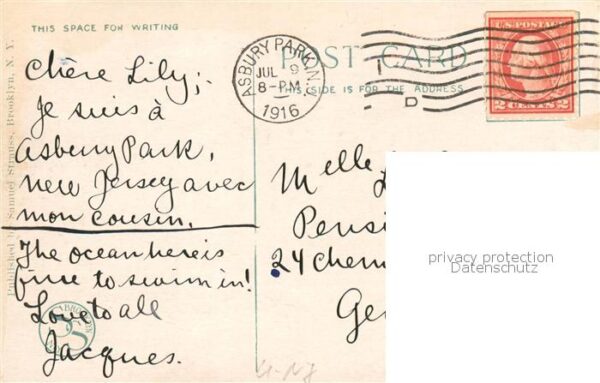 THIS SPACE FOR WRITING
POST CARD
THIS SIDE IS FOR THE ADDRESS
ASBURY PARK, N.J.
JUL 9
8-PM
1916
D
U.S. POSTAGE
2 CENTS 2
Published by Samuel Strauss, Brooklyn, N. Y.
Chère Lily;
Je suis à
Asbery Park,
New Jersey avec
mon cousin.
The ocean here is
fine to swim in!
Love to all
Jacques.
Melle
Pensi
24 Chem
Ge
privacy protection
Datenschutz